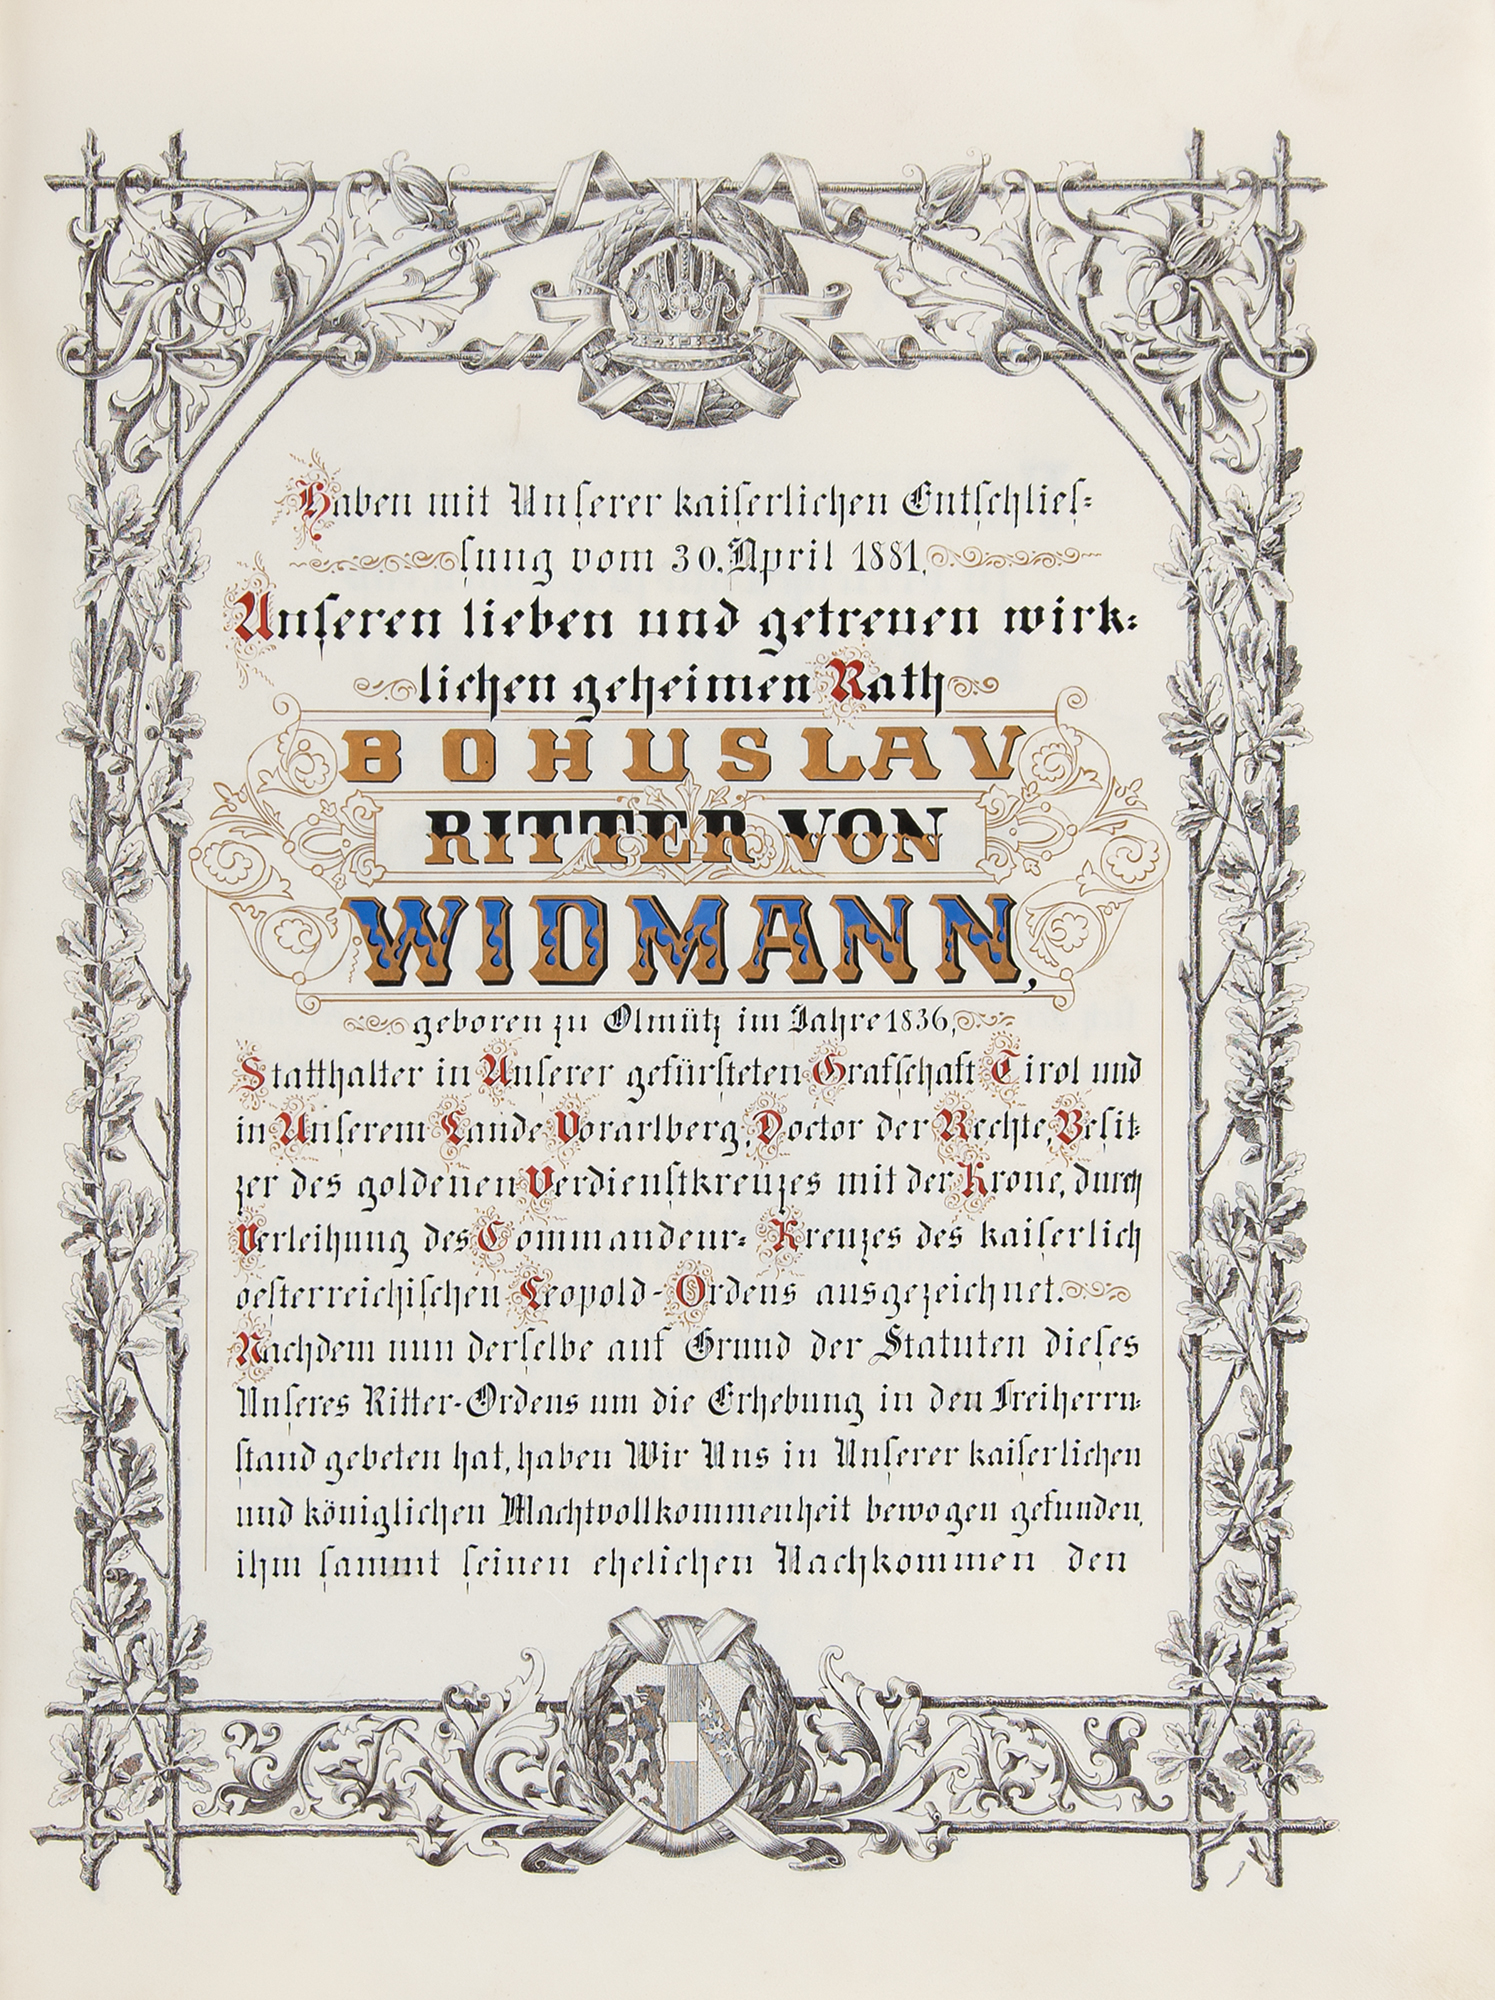 Haben mit Unserer kaiserlichen Entschlies-
sung vom 30. April 1881,
Unseren lieben und getreuen wirk-
lichen geheimen Rath
BOHUSLAV
RITTER VON
WIDMANN,
geboren zu Olmütz im Jahre 1836,
Statthalter in Unserer gefürsteten Grafschaft Tirol und
in Unserem Lande Vorarlberg, Doctor der Rechte, Besit-
zer des goldenen Verdienstkreuzes mit der Krone, durch
Verleihung des Commandeur- Kreuzes des kaiserlich
oesterreichischen Leopold-Ordens ausgezeichnet.
Nachdem nun derselbe auf Grund der Statuten dieses
Unseres Ritter-Ordens um die Erhebung in den Freiherrn-
stand gebeten hat, haben Wir Uns in Unserer kaiserlichen
und königlichen Machtvollkommenheit bewogen gefunden,
ihm sammt seinen ehelichen Nachkommen den